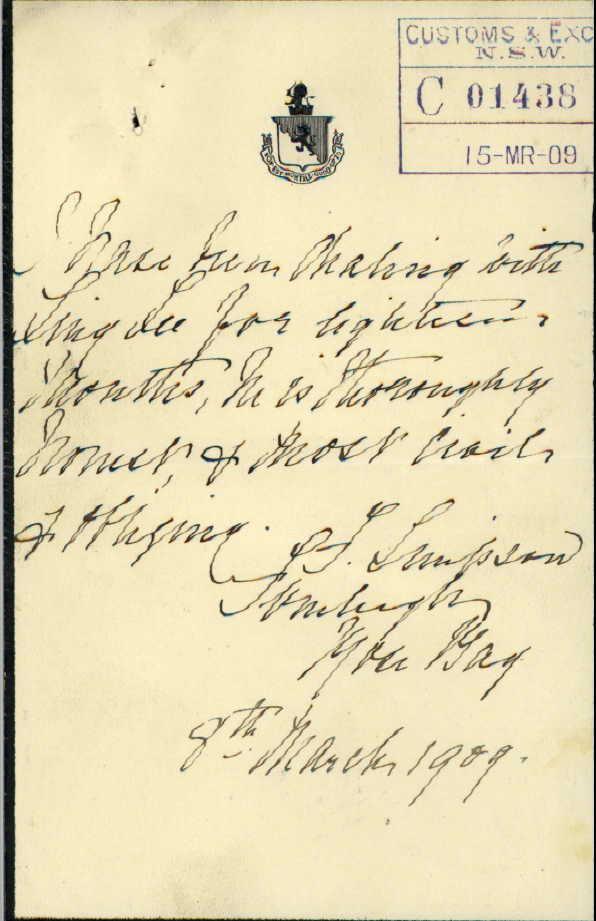 CUSTOMS & EXC
N.S.W.
C 01438
15-MR-09
I have been dealing with
Sing Lee for eighteen
Months, he is thoroughly
honest, & most civil
& obliging.
Simpson
Stoneleigh
Rose Bay
8th March 1909.